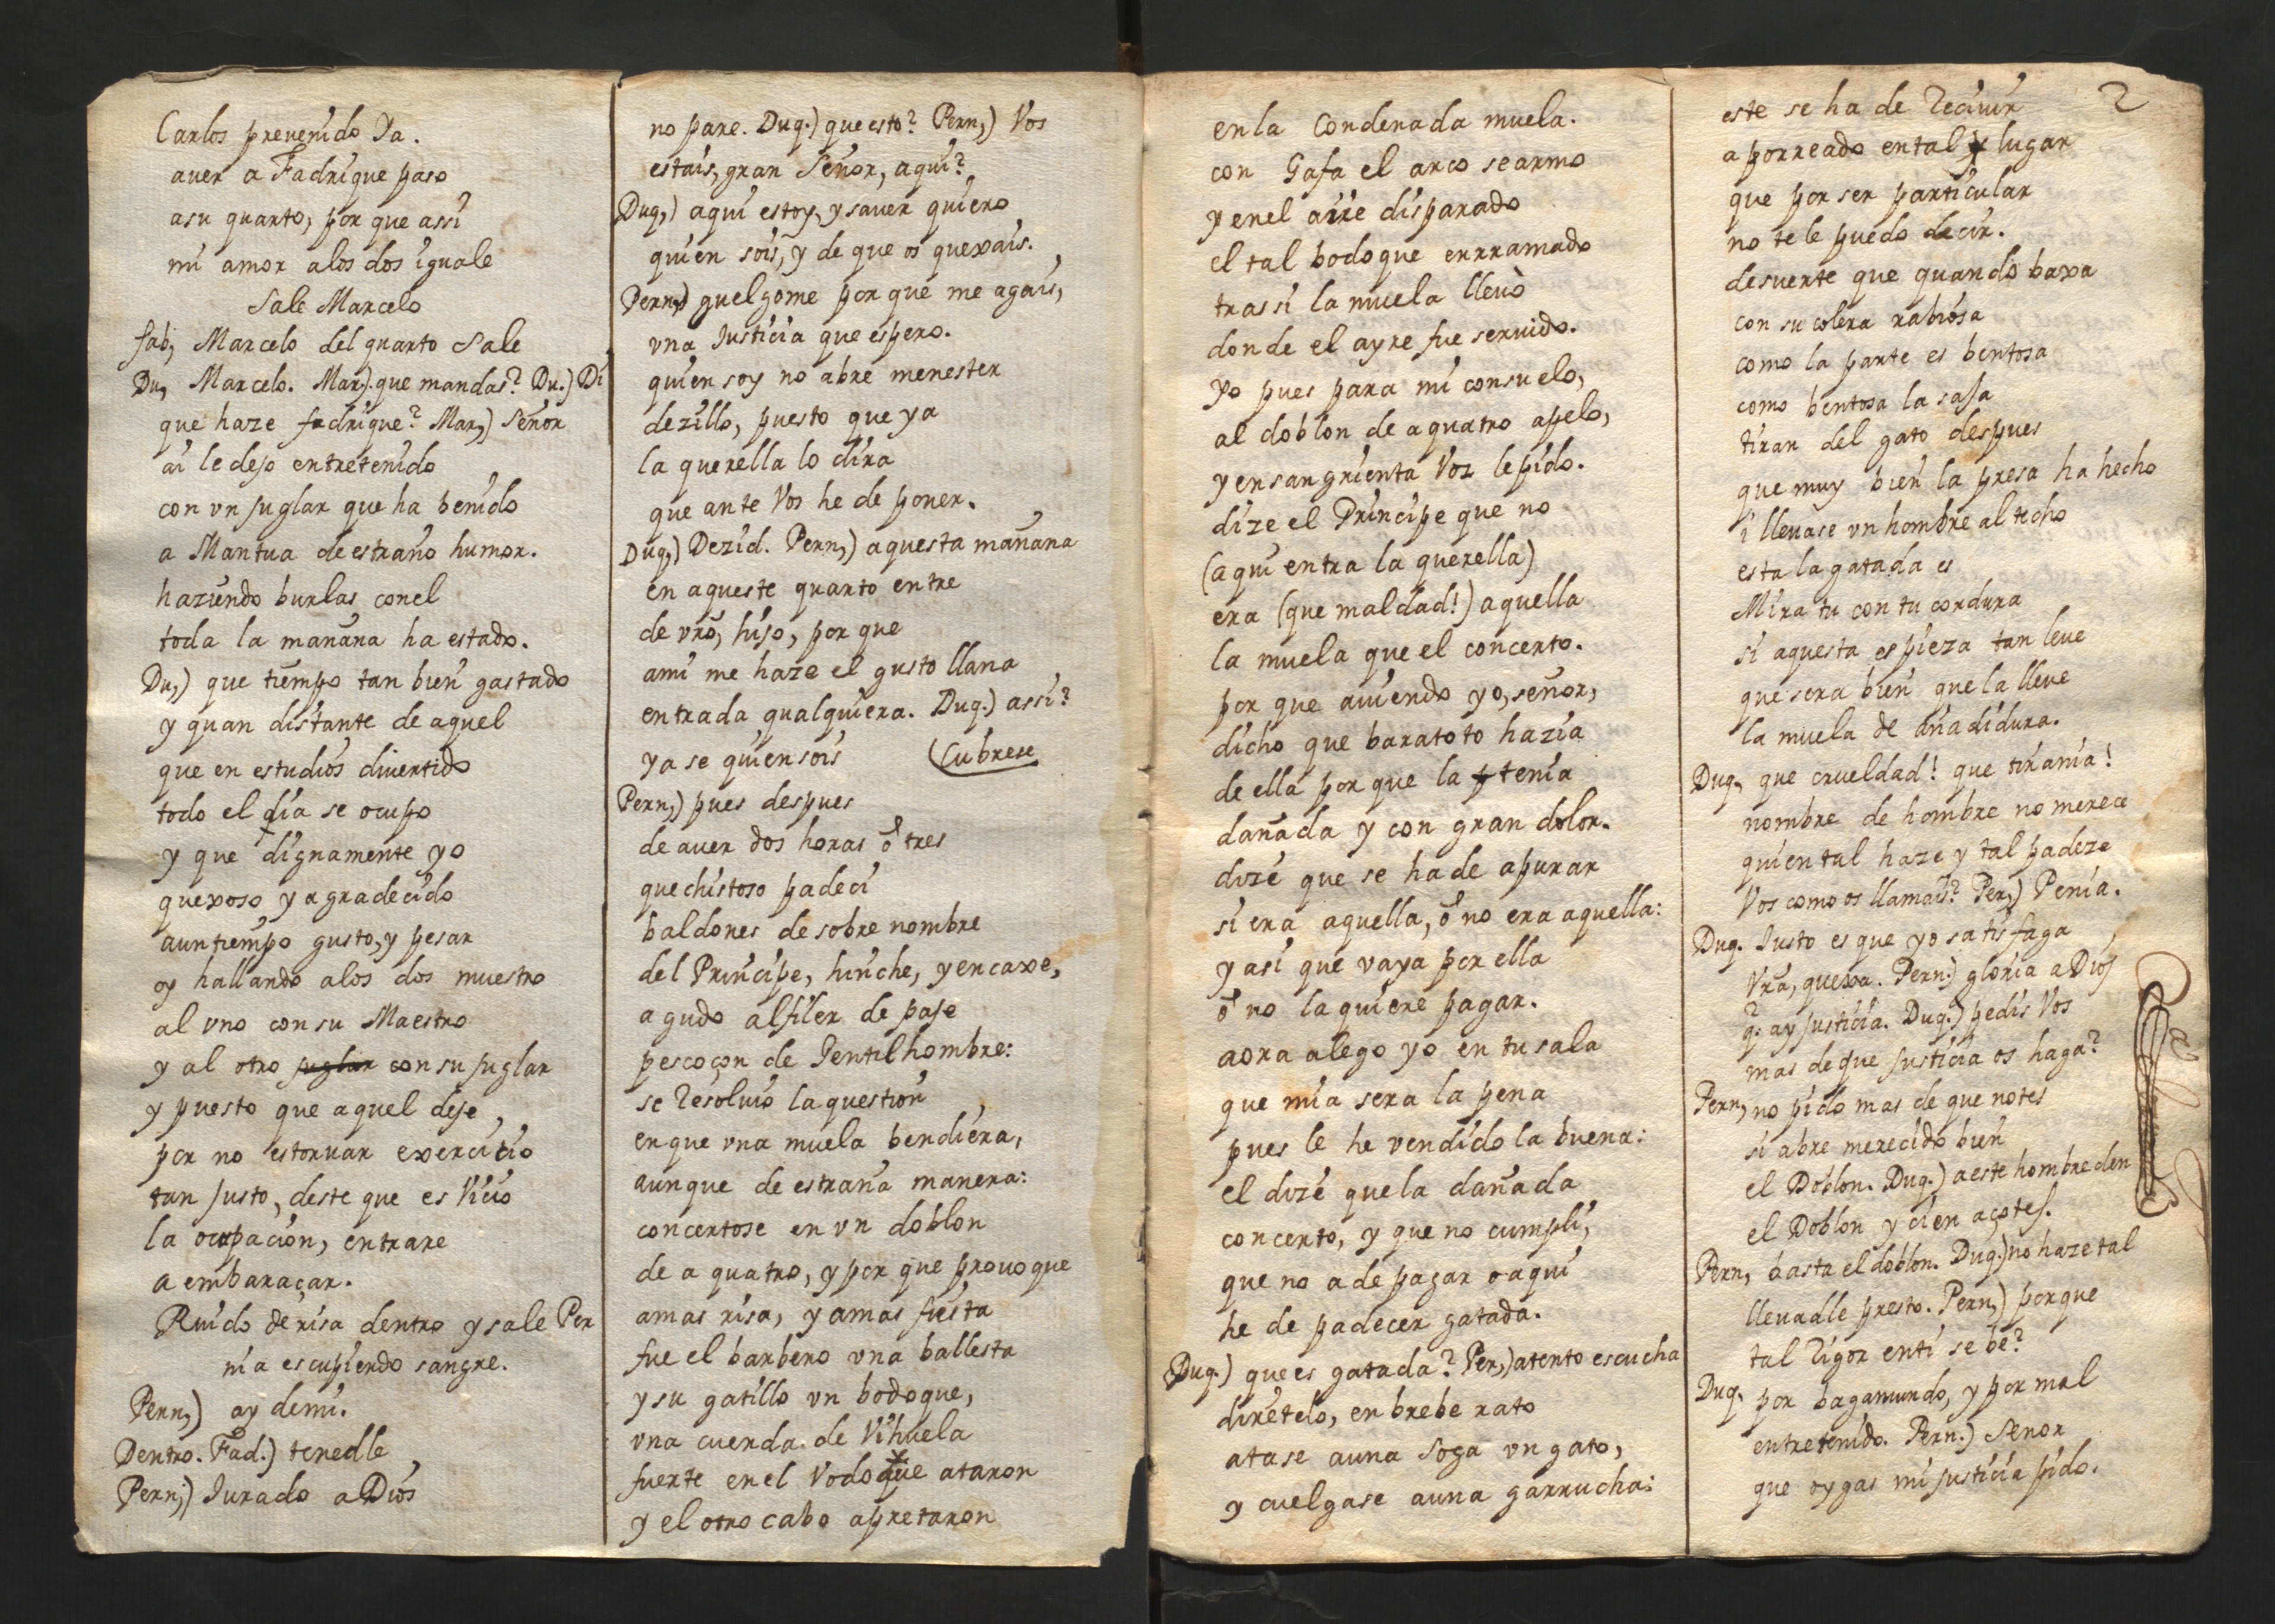 Carlos preuenido Ya.
auer a Fadrique paso
asu quarto, por que assi
mi amor alos dos iguale
Sale Marcelo
fab, Marcelo del quarto sale
Du, Marcelo. Mar,) que mandas? Du.) Di
que haze fadrique? Mar,) Señor
ai le dejo entretenido
con vn juglar que ha benido
a Mantua de estraño humor.
haziendo burlas conel
toda la mañana ha estado.
Du,) que tiempo tan bien gastado
y quan distante de aquel
que en estudios diuertido
todo el dia se ocupo
y que dignamente yo
quexoso y agradecido
auntiempo gusto, y pesar
oy hallando alos dos muestro
al vno con su Maestro
y al otro juglar con su juglar
y puesto que aquel deje,
por no estoruar exercicio
tan justo, deste que es Vicio
la ocupacion, entrare
a embaraçar.
Ruido de risa dentro y sale Per
nia escupiendo sangre.
Pern,) ay demi.
Dentro. Fad.) tenedle
Pern,) Jurado a Dios
no pare. Duq.) que esto? Pern,) Vos
estais, gran Señor, aqui?
Duq,) aqui estoy, y sauer quiero
quien sois, y de que os quexais.
Pern,) guelgome por que me agais,
vna Justicia que espero.
quien soy no abre menester
dezillo, puesto que ya
la querella lo dira
que ante Vos he de poner.
Duq,) Dezid. Pern,) aquesta mañana
en aqueste quarto entre
de vrõ, hijo, por que
ami me haze el gusto llana
entrada qualquiera. Duq.) assi?
ya se quien sois (Cubrese
Pern,) pues despues
de auer dos horas ò tres
que chistoso padeci
baldones de sobre nombre
del Principe, hinche, y encaxe,
agudo alfiler de paje
pescoçon de Jentilhombre:
se resoluio la question
en que vna muela bendiera,
aunque de estraña manera:
concertose en vn doblon
de a quatro, y por que prouoque
amas risa, y amas fiesta
fue el barbero vna ballesta
y su gatillo vn bodoque,
vna cuerda de Vihuela
fuerte en el Vodoque ataron
y el otro cabo apretaron
enla Condenada muela.
con Gafa el arco se armo
y enel aire disparado
el tal bodoque enrramado
tras si la muela lleuò
donde el ayre fue seruido.
Yo pues para mi consuelo,
al doblon de aquatro apelo,
y ensangrienta Voz le pido.
dize el Principe que no
(aqui entra la querella)
era (que maldad!) aquella
la muela que el concerto.
por que auiendo yo, señor,
dicho que baratoto hazia
de ella por que la tenia
dañada y con gran dolor.
dize que se ha de apurar
si era aquella, ò no era aquella:
y asi que vaya por ella
ò no la quiere pagar.
aora alego yo en tu sala
que mia sera la pena
pues le he vendido la buena:
el dize quela dañada
concerto, y que no cumpli,
que no a de pagar o aqui
he de padecer gatada.
Duq.) que es gatada? Per,) atento escucha
diretelo, en brebe rato
atase auna soga vn gato,
y cuelgase auna garrucha:
2
este se ha de recivir
aporreado en tal lugar
que por ser particular
no te le puedo decir.
desuerte que quando baxa
con su colera rabiosa
como la parte es bentosa
como bentosa la saja
tiran del gato despues
que muy bien la presa ha hecho
i lleuase vn hombre al techo
esta la gatada es
Mira tu con tu cordura
si aquesta es pieza tan leue
que sera bien que la lleue
la muela de añadidura.
Duq, que crueldad! que tirania!
nombre de hombre no merece
quien tal haze y tal padeze
Vos como os llamais? Per,) Pernia.
Duq. Justo es que yo satisfaga
Vrã, quexa. Pern.) gloria a Dios
q. ay justicia. Duq.) pedis Vos
mas de que justicia os haga?
Pern, no pido mas de que notes
si abre merecido bien
el Doblon. Duq.) a este hombre den
el Doblon y cien açotes.
Pern, basta el doblon. Duq.) no haze tal
lleuadle presto. Pern,) porque
tal rigor enti se be?
Duq, por bagamundo, y por mal
entretenido. Pern.) Senor
que oygas mi justicia pido.